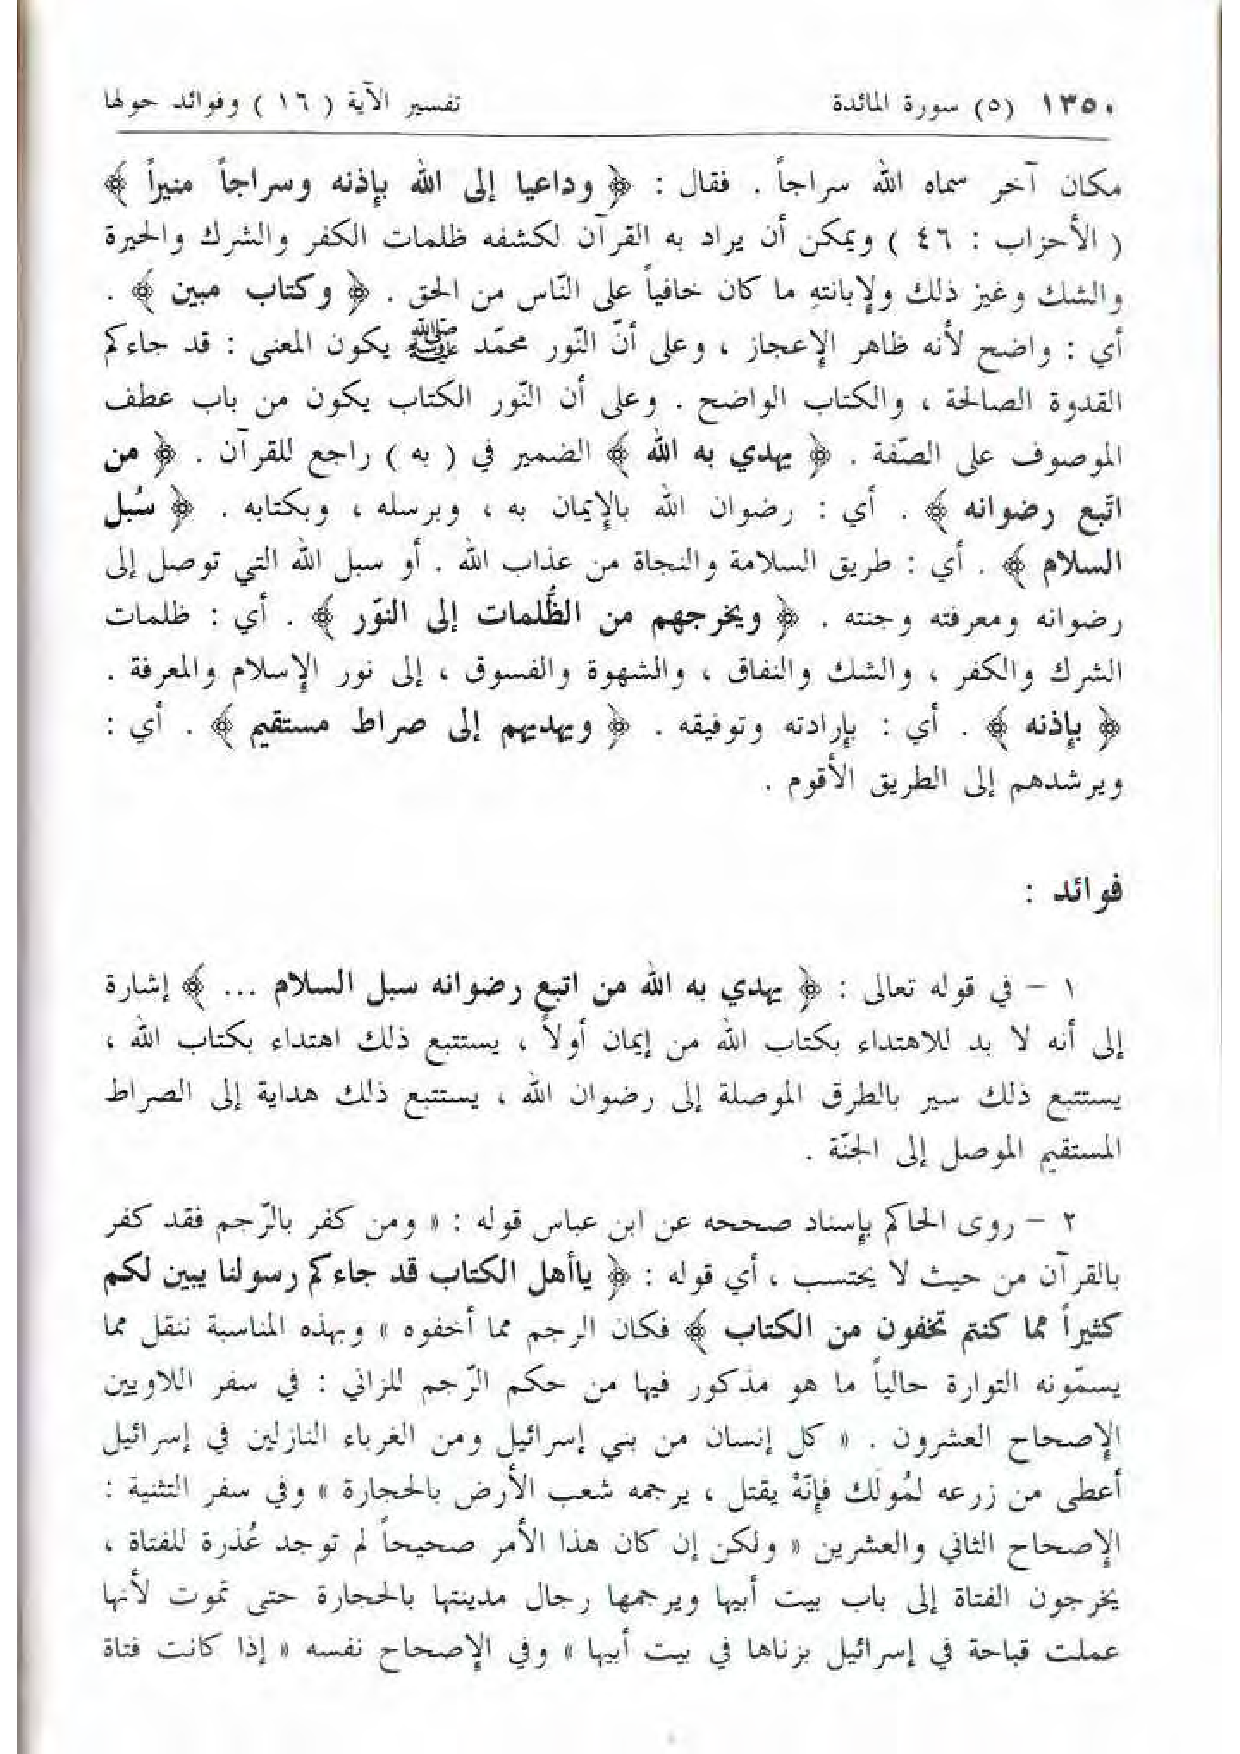 ١٣٥٠ (٥) سورة المائدة تفسير الآية ( ١٦ ) وفوائد حولها
مكان آخر سماه الله سراجاً . فقال : ﴿ وداعيا إلى الله بإذنه وسراجاً منيراً ﴾
( الأحزاب : ٤٦ ) ويمكن أن يراد به القرآن لكشفه ظلمات الكفر والشرك والحيرة
والشك وغيز ذلك ولإبانتهِ ما كان خافياً على النّاس من الحق . ﴿ وكتاب مبين ﴾ .
أي : واضح لأنه ظاهر الإعجاز ، وعلى أنّ النّور محمّد ﷺ يكون المعنى : قد جاءكم
القدوة الصالحة ، والكتاب الواضح . وعلى أن النّور الكتاب يكون من باب عطف
الموصوف على الصّفة . ﴿ يهدي به الله ﴾ الضمير في ( به ) راجع للقرآن . ﴿ من
اتّبع رضوانه ﴾ . أي : رضوان الله بالإيمان به ، وبرسله ، وبكتابه . ﴿ سُبل
السلام ﴾ . أي : طريق السلامة والنجاة من عذاب الله . أو سبل الله التي توصل إلى
رضوانه ومعرفته وجنته . ﴿ ويخرجهم من الظُّلمات إلى النوّر ﴾ . أي : ظلمات
الشرك والكفر ، والشك والنفاق ، والشهوة والفسوق ، إلى نور الإسلام والمعرفة .
﴿ بإذنه ﴾ . أي : بإرادته وتوفيقه . ﴿ ويهديهم إلى صراط مستقيم ﴾ . أي :
ويرشدهم إلى الطريق الأقوم .
فوائد :
١ – في قوله تعالى : ﴿ يهدي به الله من اتبع رضوانه سبل السلام ... ﴾ إشارة
إلى أنه لا بد للاهتداء بكتاب الله من إيمان أولاً ، يستتبع ذلك اهتداء بكتاب الله ،
يستتبع ذلك سير بالطرق الموصلة إلى رضوان الله ، يستتبع ذلك هداية إلى الصراط
المستقيم الموصل إلى الجنّة .
٢ – روى الحاكم بإسناد صححه عن ابن عباس قوله : « ومن كفر بالرّجم فقد كفر
بالقرآن من حيث لا يحتسب ، أي قوله : ﴿ ياأهل الكتاب قد جاءكم رسولنا يبين لكم
كثيراً مما كنتم تخفون من الكتاب ﴾ فكان الرجم مما أخفوه » وبهذه المناسبة ننقل مما
يسمّونه التوارة حالياً ما هو مذكور فيها من حكم الرّجم للزاني : في سفر اللاويين
الإصحاح العشرون . « كل إنسان من بني إسرائيل ومن الغرباء النازلين في إسرائيل
أعطى من زرعه لمُولك فإنّهْ يقتل ، يرجمه شعب الأرض بالحجارة » وفي سفر التثنية :
الإصحاح الثاني والعشرين « ولكن إن كان هذا الأمر صحيحاً لم توجد عُذرة للفتاة ،
يخرجون الفتاة إلى باب بيت أبيها ويرجمها رجال مدينتها بالحجارة حتى تموت لأنها
عملت قباحة في إسرائيل بزناها في بيت أبيها » وفي الإصحاح نفسه « إذا كانت فتاة